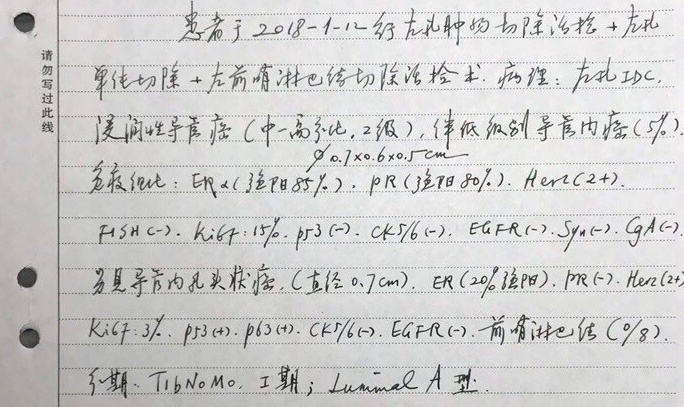 请勿写过此线
患者于2018-1-12行左乳肿物切除活检+左乳
单纯切除+左前哨淋巴结切除活检术. 病理: 左乳IDC.
浸润性导管癌(中-高分化, 2级), 伴低级别导管内癌(5%).
∅0.7x0.6x0.5cm
免疫组化: ERα(强阳85%). PR(强阳80%). Her2(2+).
FISH(-). Ki67:15%. p53(-). CK5/6(-). EGFR(-). Syn(-). CgA(-).
另见导管内乳头状癌.(直径0.7cm). ER(20%强阳). PR(-). Her2(2+)
Ki67:3%. p53(+). p63(+). CK5/6(-). EGFR(-). 前哨淋巴结(0/8).
分期: T1bN0M0. I期; Luminal A型.